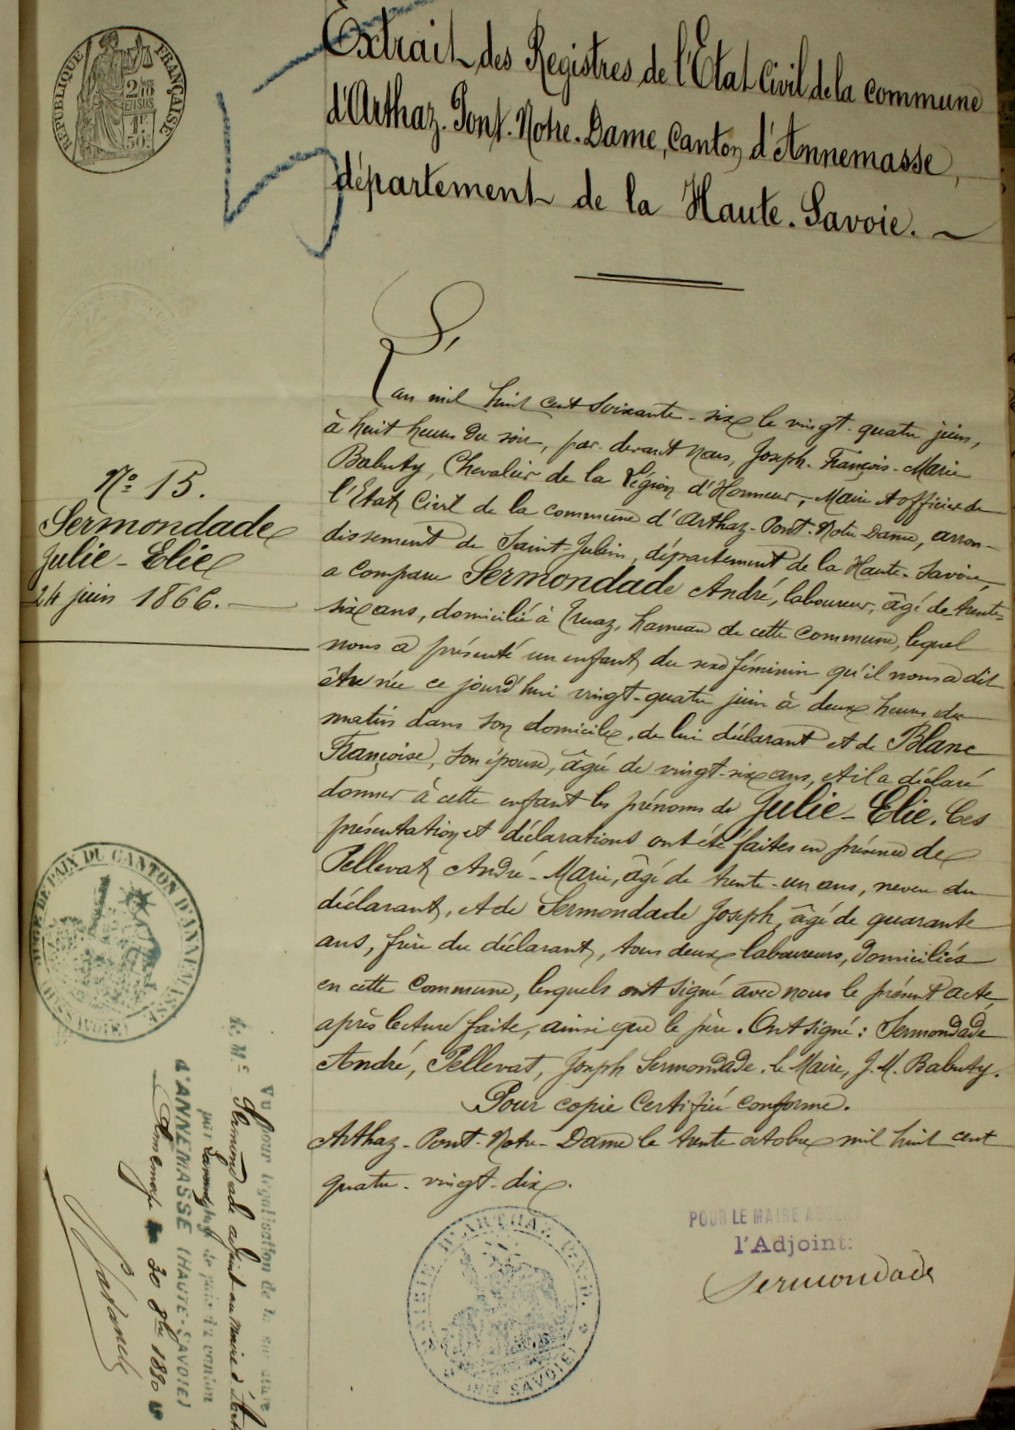 RÉPUBLIQUE FRANÇAISE
2/10
EN SUS
1F
50c
Extrait des Registres de l'État Civil de la commune
d'Arthaz-Pont-Notre-Dame, Canton d'Annemasse,
département de la Haute-Savoie.
L'
an mil huit cent soixante-six le vingt-quatre juin,
à huit heures du soir, par devant Nous, Joseph-François-Marie
Babuty, Chevalier de la Légion d'Honneur, Maire et officier de
l'Etat Civil de la commune d'Arthaz-Pont-Notre-Dame, arron-
dissement de Saint-Julien, département de la Haute-Savoie
a comparu Sermondade André, laboureur, âgé de trente-
six ans, domicilié à Truaz, hameau de cette commune, lequel
nous a présenté un enfant du sexe féminin qu'il nous a dit
être née ce jourd'hui vingt-quatre juin à deux heures du
matin dans son domicile, de lui déclarant et de Blanc
Françoise, son épouse, âgée de vingt-six ans, et il a déclaré
donner à cette enfant les prénoms de Julie-Elie. Ces
présentation et déclarations ont été faites en présence de
Pellevat André-Marie, âgé de trente-un ans, neveu du
déclarant, et de Sermondade Joseph, âgé de quarante
ans, frère du déclarant, tous deux laboureurs, domiciliés
en cette commune, lesquels ont signé avec nous le présent acte
après lecture faite, ainsi que le père. Ont signé: Sermondade
André, Pellevat, Joseph Sermondade. le Maire, J. M. Babuty.
Pour copie certifiée conforme.
Arthaz-Pont-Notre-Dame le trente octobre mil huit cent
quatre-vingt-dix.
POUR LE MAIRE ABSENT
l'Adjoint:
Sermondade
MAIRIE D'ARTHAZ P.N.D.
(HTE SAVOIE)
No 15.
Sermondade
Julie-Elie
24 juin 1866.
JUGE DE PAIX DU CANTON D'ANNEMASSE
(HTE SAVOIE)
Vu pour légalisation de la signature
de Mr Sermondade adjoint au maire d'Arth
par de paix du canton
d'ANNEMASSE (HAUTE-SAVOIE)
Annemasse le 30 8bre 1890